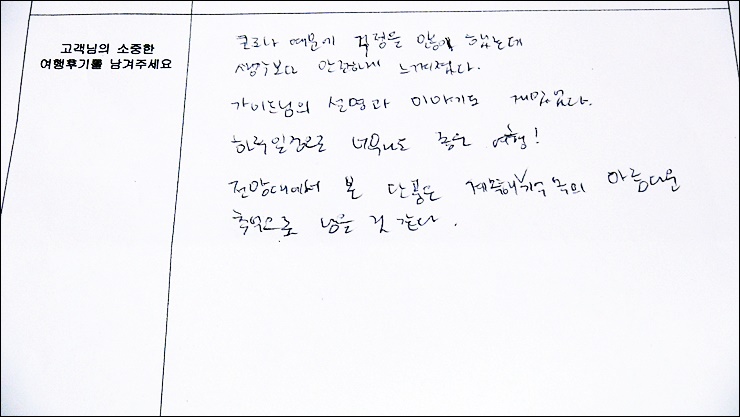 고객님의 소중한
여행후기를 남겨주세요
코로나 때문에 걱정을 많이 했는데
생각보다 안전하게 느껴졌다.
가이드님의 설명과 이야기도 재밌었다.
하루일정으로 너무나도 좋은 여행!
전망대에서 본 단풍은 속의 아름다운
추억으로 남을 것 같다.